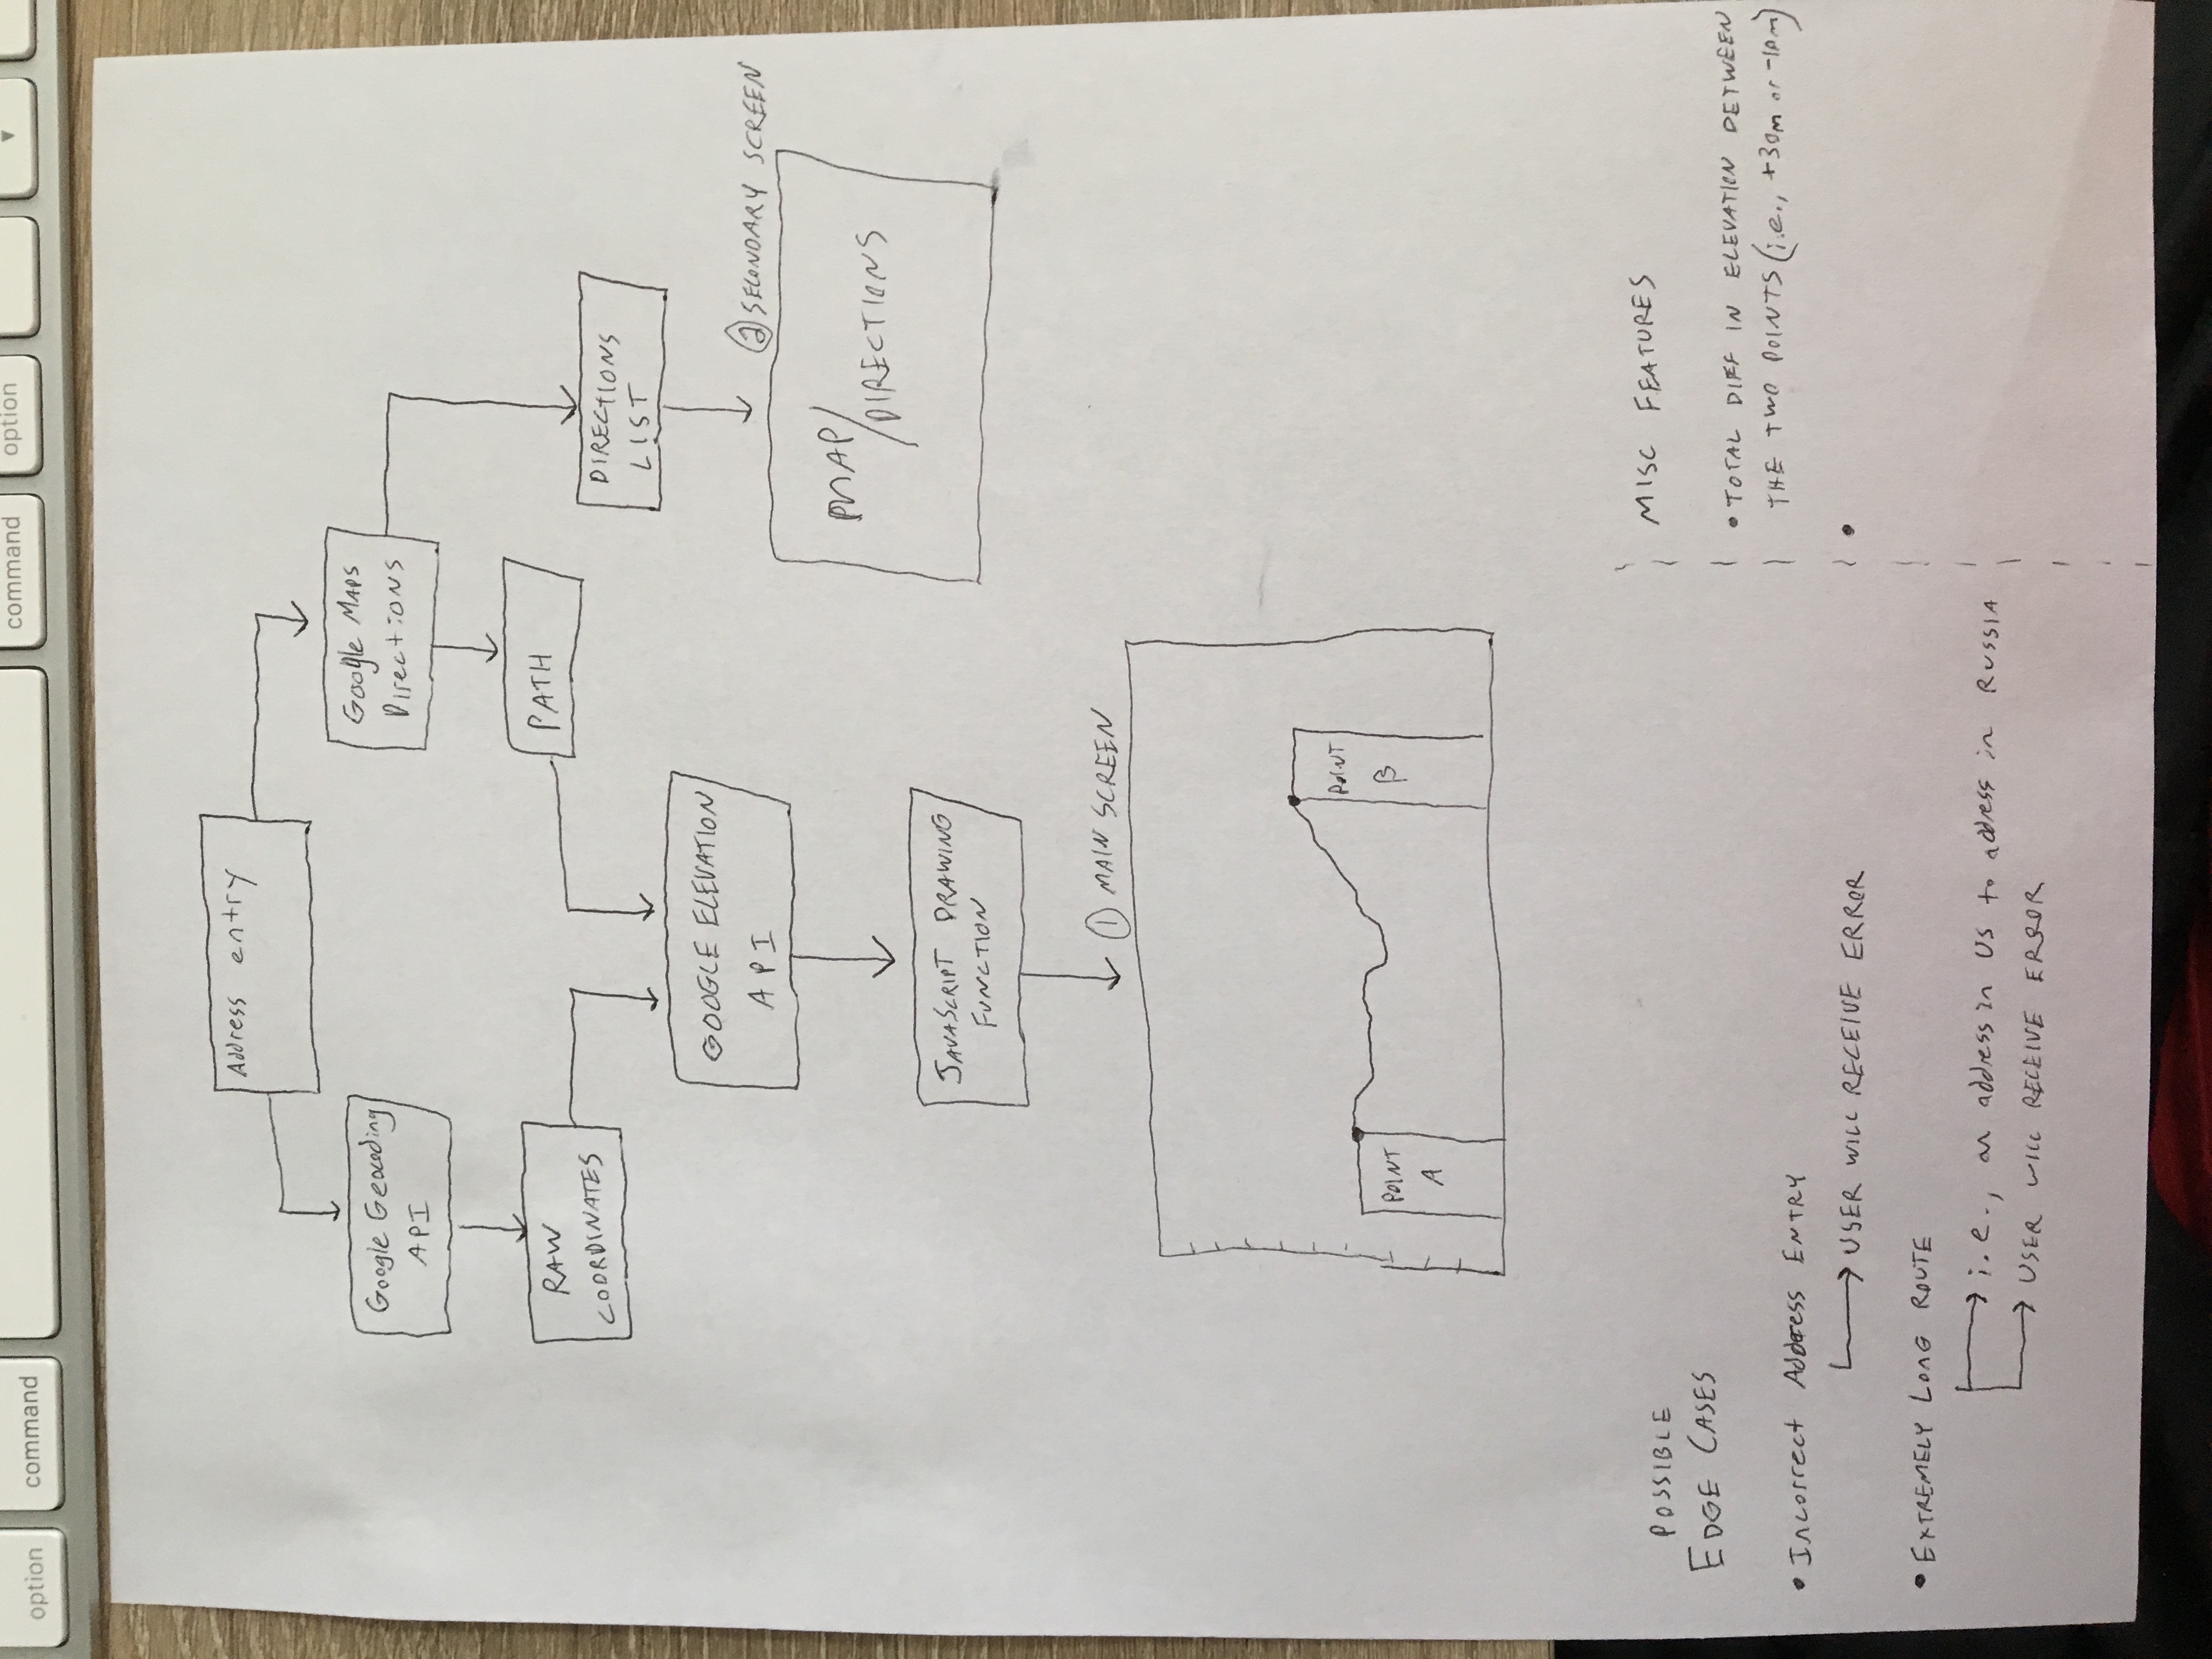 option
command
command
option
▼
Address entry
Google Geocoding
API
Google Maps
Directions
RAW
COORDINATES
PATH
DIRECTIONS
LIST
GOOGLE ELEVATION
API
② SECONDARY SCREEN
MAP/
DIRECTIONS
JAVASCRIPT DRAWING
FUNCTION
① MAIN SCREEN
POINT
A
POINT
B
POSSIBLE
EDGE CASES
• Incorrect Address ENTRY
USER WILL RECEIVE ERROR
• EXTREMELY LONG ROUTE
i.e., an address in US to address in RUSSIA
USER WILL RECEIVE ERROR
MISC FEATURES
• TOTAL DIFF IN ELEVATION BETWEEN
THE TWO POINTS (i.e., +30m or -10m)
•